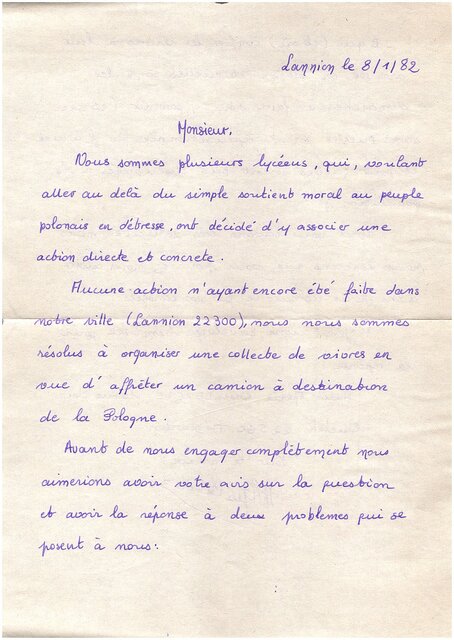 Lannion le 8/1/82
Monsieur.
Nous sommes plusieurs lycéens, qui, voulant
aller au delà du simple soutient moral au peuple
polonais en détresse, ont décidé d'y associer une
action directe et concrete.
Aucune action n'ayant encore été faite dans
notre ville (Lannion 22300), nous nous sommes
résolus à organiser une collecte de vivres en
vue d'affréter un camion à destination
de la Pologne.
Avant de nous engager complètement nous
aimerions avoir votre avis sur la question
et avoir la réponse à deux problemes qui se
posent à nous: